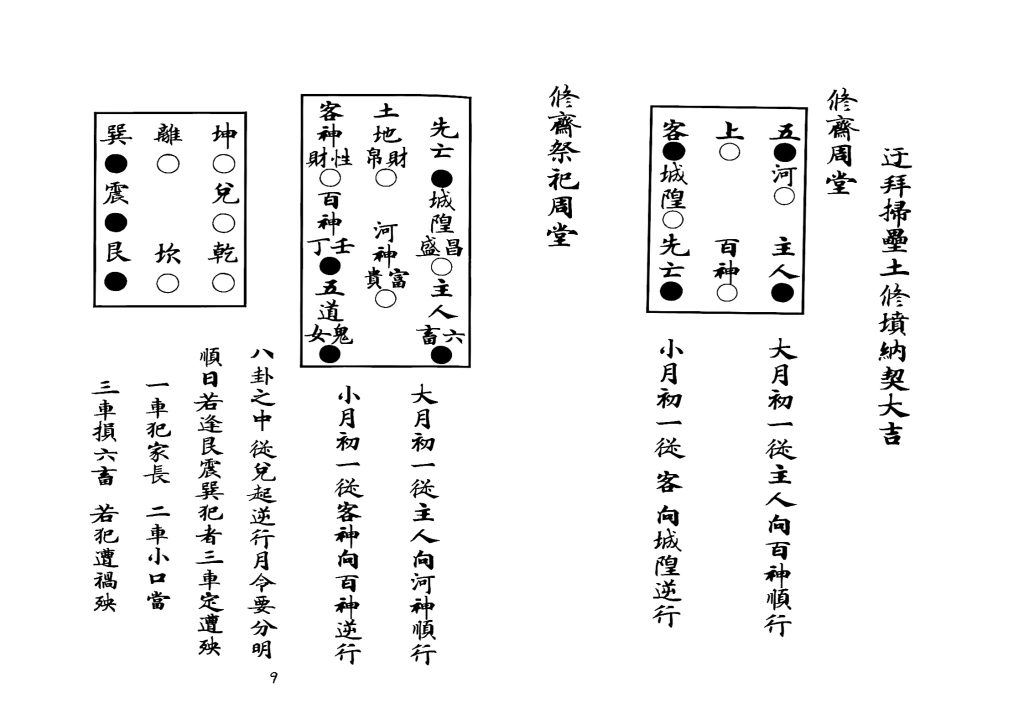 迂拜掃壘土修墳納契大吉
修齋周堂
五●河○主人●
上○百神○
客●城隍○先亡●
大月初一從主人向百神順行
小月初一從客向城隍逆行
修齋祭祀周堂
先亡●城隍昌盛○主人六畜●
土地財帛○河神富貴○
客神性財○百神壬丁●五道鬼女●
大月初一從主人向河神順行
小月初一從客神向百神逆行
坤○兌○乾○
離○坎○
巽●震●艮●
八卦之中從兌起逆行月令要分明
順日若逢艮震巽犯者三車定遭殃
一車犯家長 二車小口當
三車損六畜 若犯遭禍殃
9